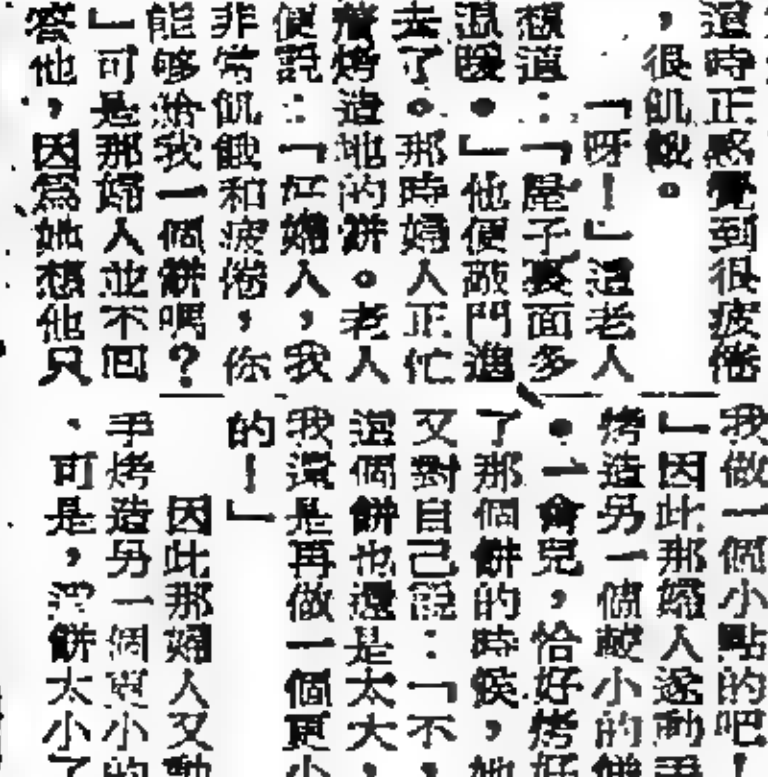 這時正感覺到很疲倦
，很飢餓。
「呀！」這老人
想道：「屋子裏面多
溫暖。」他便敲門進
去了。那時婦人正忙
着烤造地的餅。老人
便說：「好婦人，我
非常飢餓和疲倦，你
能够給我一個餅嗎？
」可是那婦人並不回
答他，因為她想他只
我做一個小點的吧！
」因此那婦人遂動手
烤造另一個較小的餅
。一會兒，恰好烤好
了那個餅的時候，她
又對自己說：「不，
這個餅也還是太大，
我還是再做一個更小
的！」
因此那婦人又動
手烤造另一個更小的
。可是，這餅太小了